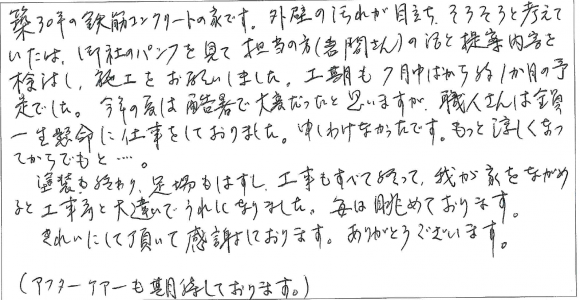 築30年の鉄筋コンクリートの家です。外壁の汚れが目立ち、そろそろと考えて
いた時、御社のパンフを見て担当の方(善聞さん)の話と提案内容を
検討し、施工をお願いしました。工期も7月中ばから約1か月の予
定でした。今年の夏は酷暑で大変だったと思いますが、職人さんは全員
一生懸命に仕事をしておりました。申しわけなかったです。もっと涼しくなっ
てからでもと…。
塗装も終わり、足場もはずし、工事もすべて終って、我が家をながめ
ると工事前と大違いでうれしくなりました。毎日眺めております。
きれいにして頂いて感謝しております。ありがとうございます。
(アフターケアーも期待しております。)